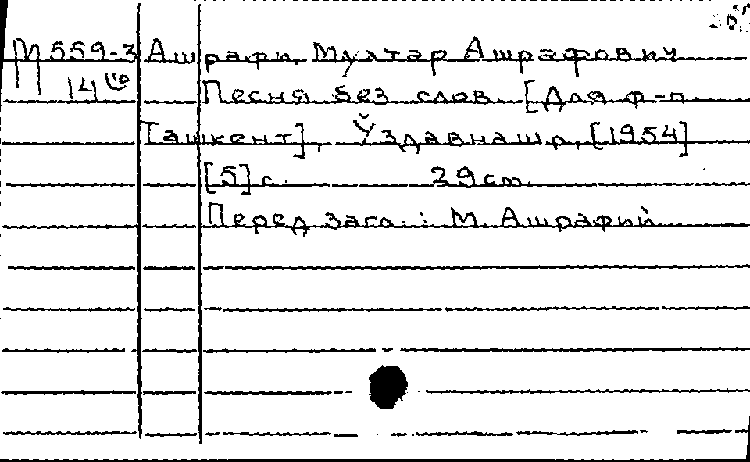 М 559-3 Ашрафи, Мухтар Ашрафович
Песня без слов. [Для ф-п.
Ташкент], Ўздавнашр, [1954]
[5] с. 29 см.
Перед загл.: М. Ашрафий